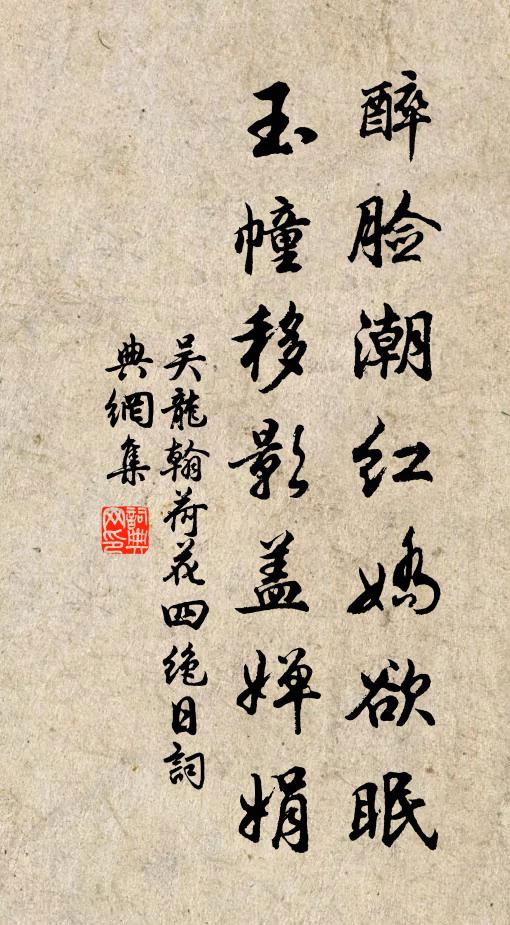 醉脸潮红娇欲眠
玉幢移影盖婵娟
吴龍翰荷花四绝日詞
典網集
詞典网印